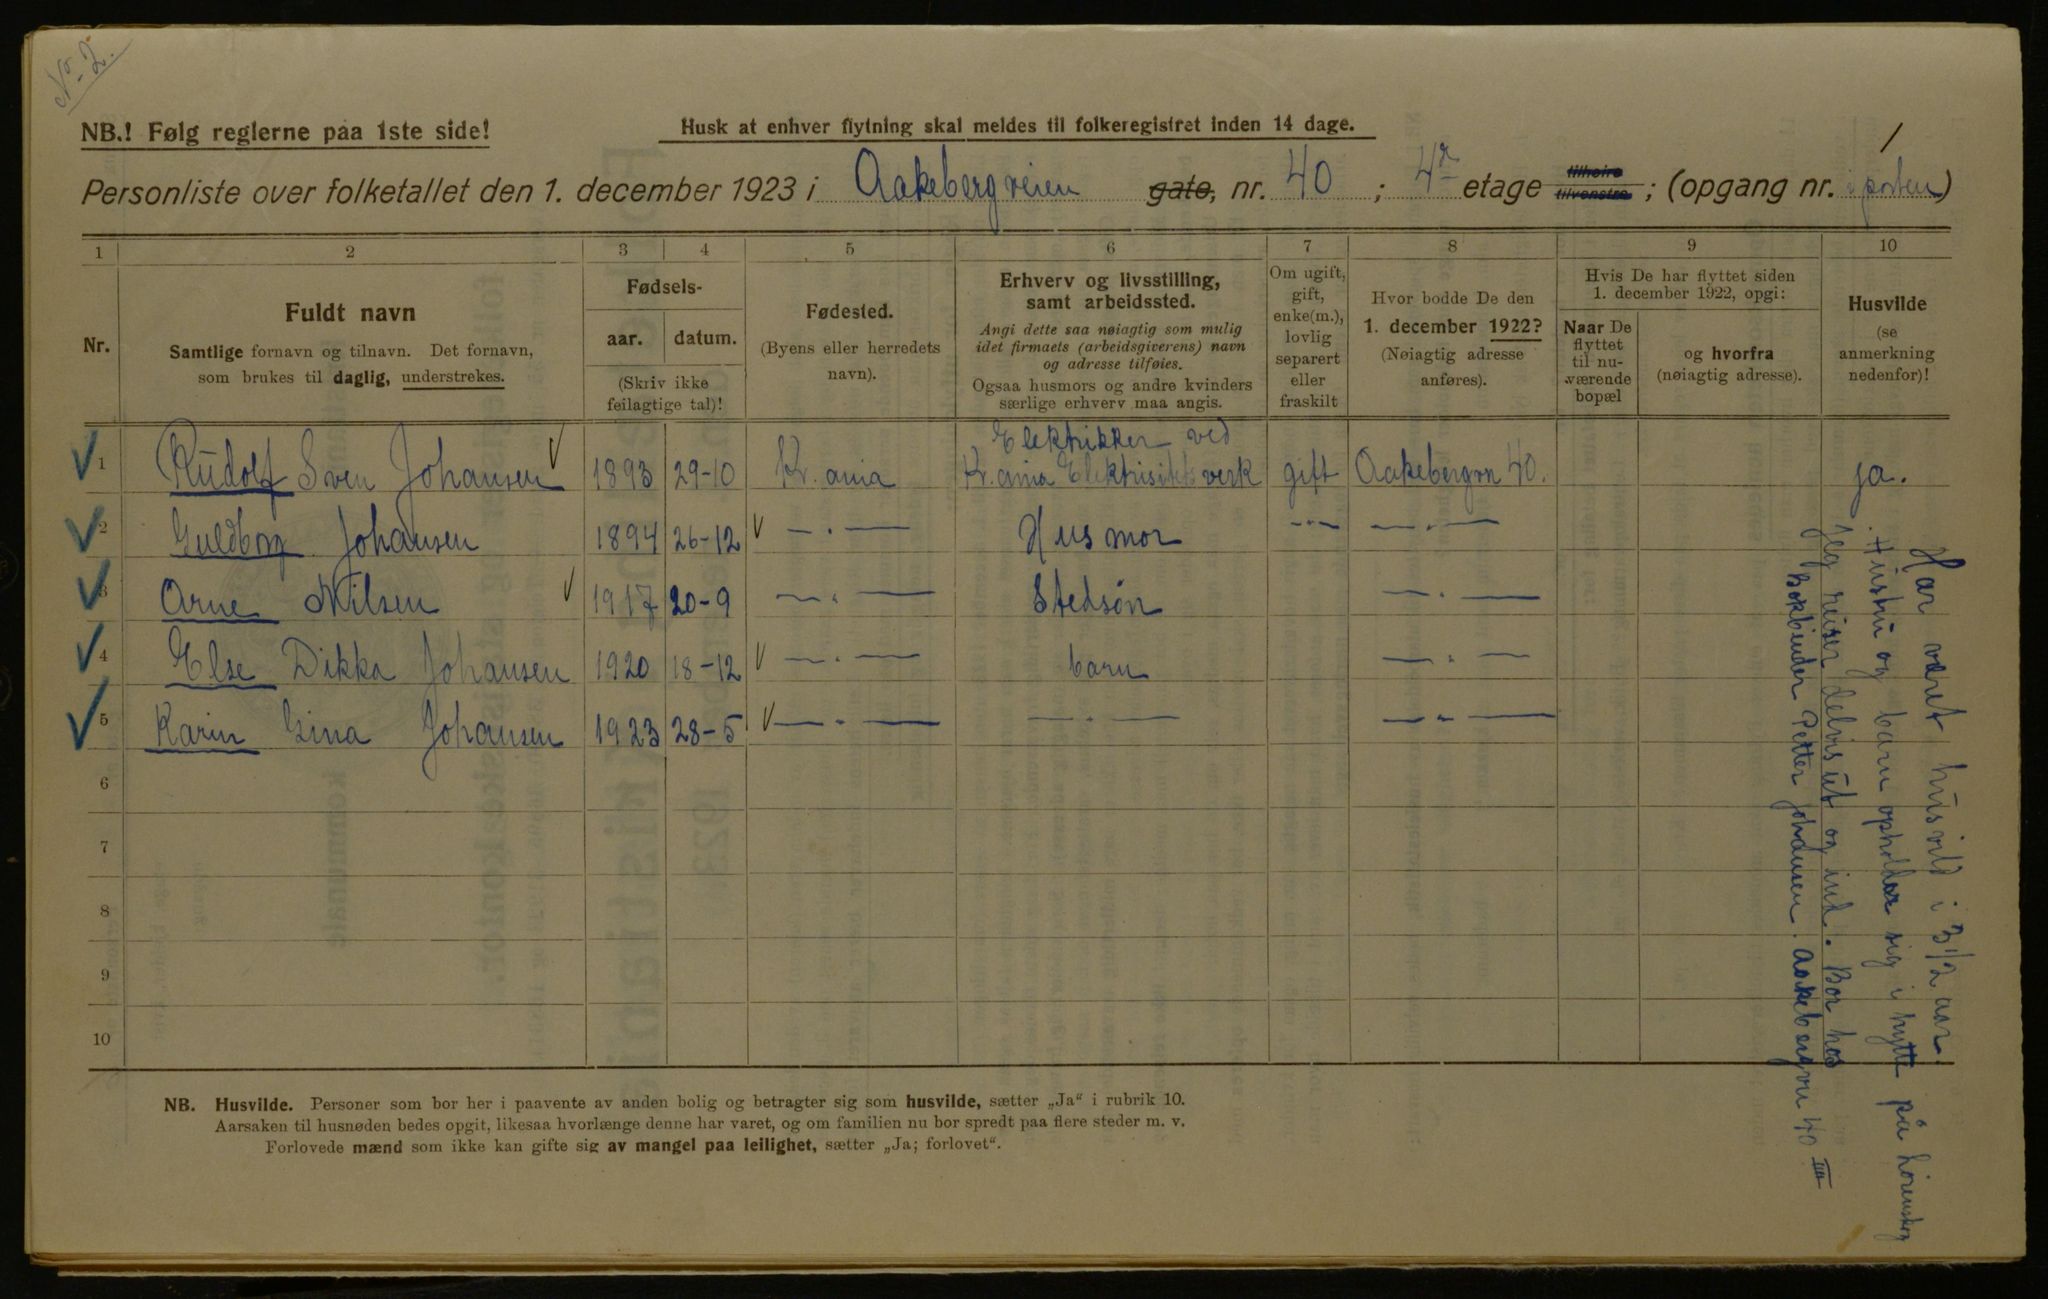 No 2.
NB.! Følg reglerne paa 1ste side!
Husk at enhver flytning skal meldes til folkeregistret inden 14 dage.
Personliste over folketallet den 1. december 1923 i Aakebergveien gate, nr. 40 ; 4de etage tilhøire tilvenstre ; (opgang nr. 1 i porten)
1 2 3 4 5 6 7 8 9 10
Nr.
Fuldt navn
Samtlige fornavn og tilnavn. Det fornavn,
som brukes til daglig, understrekes.
Fødsels-
aar. datum.
(Skriv ikke
feilagtige tal)!
Fødested.
(Byens eller herredets
navn).
Erhverv og livsstilling,
samt arbeidssted.
Angi dette saa nøiagtig som mulig
idet firmaets (arbeidsgiverens) navn
og adresse tilføies.
Ogsaa husmors og andre kvinders
særlige erhverv maa angis.
Om ugift,
gift,
enke(m.),
lovlig
separert
eller
fraskilt
Hvor bodde De den
1. december 1922?
(Nøiagtig adresse
anføres).
Hvis De har flyttet siden
1. december 1922, opgi:
Naar De
flyttet
til nu-
værende
bopæl
og hvorfra
(nøiagtig adresse).
Husvilde
(se
anmerkning
nedenfor)!
1 Rudolf Sven Johansen 1893 29-10 Kr.ania Elektrikker ved Kr.ania Elektrisitetsverk gift Aakebergvn 40. ja.
2 Guldborg Johansen 1894 26-12 — " — Husmor — " — — " —
3 Arne Nilsen 1917 20-9 — " — Stedsøn — " —
4 Else Dikka Johansen 1920 18-12 — " — barn — " —
5 Karin Gina Johansen 1923 28-5 — " — — " — — " —
6
7
8
9
10
Har været husvild i 3 1/2 aar.
Hustru og barn opholder sig i hytte på Lørenskog
Jeg reiser delvis ut og ind. Bor hos
Bokbinder Petter Johansen. Aakebergvn 40 III
NB. Husvilde. Personer som bor her i paavente av anden bolig og betragter sig som husvilde, sætter „Ja“ i rubrik 10.
Aarsaken til husnøden bedes opgit, likesaa hvorlænge denne har varet, og om familien nu bor spredt paa flere steder m. v.
Forlovede mænd som ikke kan gifte sig av mangel paa leilighet, sætter „Ja; forlovet“.